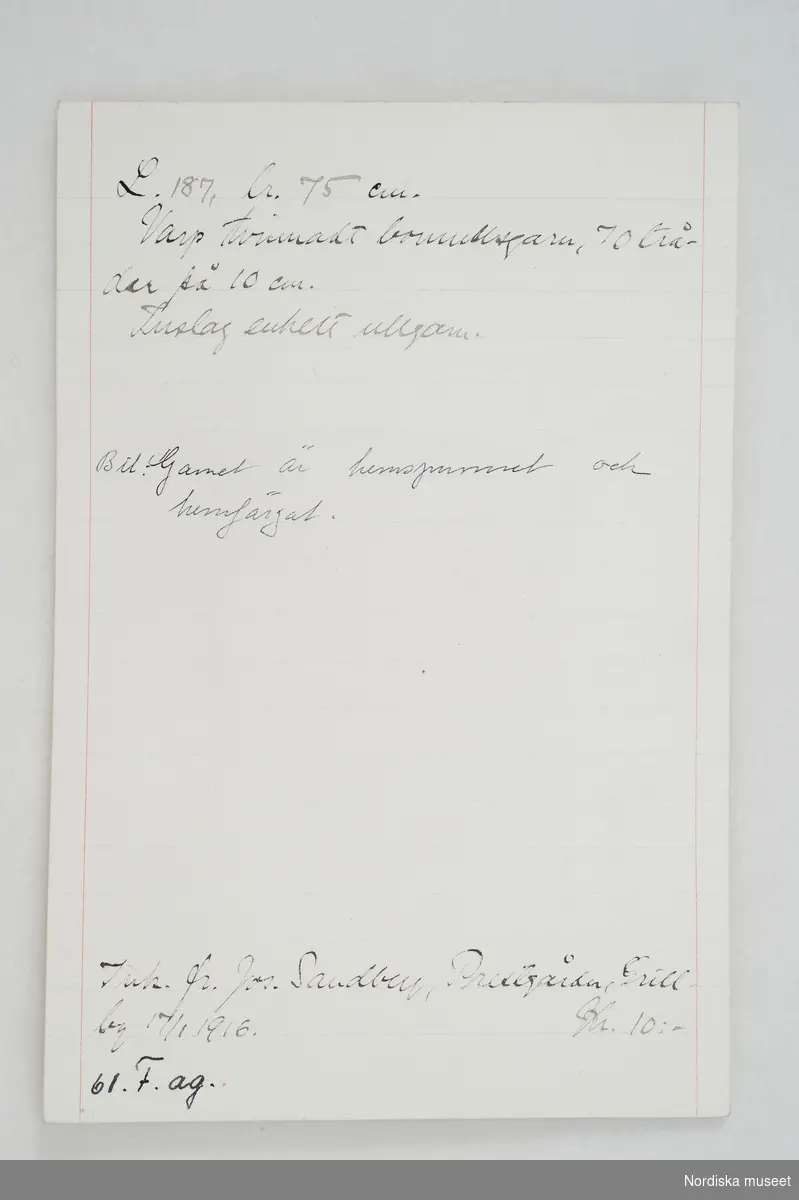 L. 187, br. 75 cm.
Varp tvinnadt bomullsgarn, 70 trå-
dar på 10 cm.
Inslag enkelt ullgarn.
Bil. Garnet är hemspunnet och
hemfärgat.
Ink. fr. Jos. Sandberg, Prestgården, Grill-
by 17/1 1916. Kr. 10:-
61. F. ag.
Nordiska museet